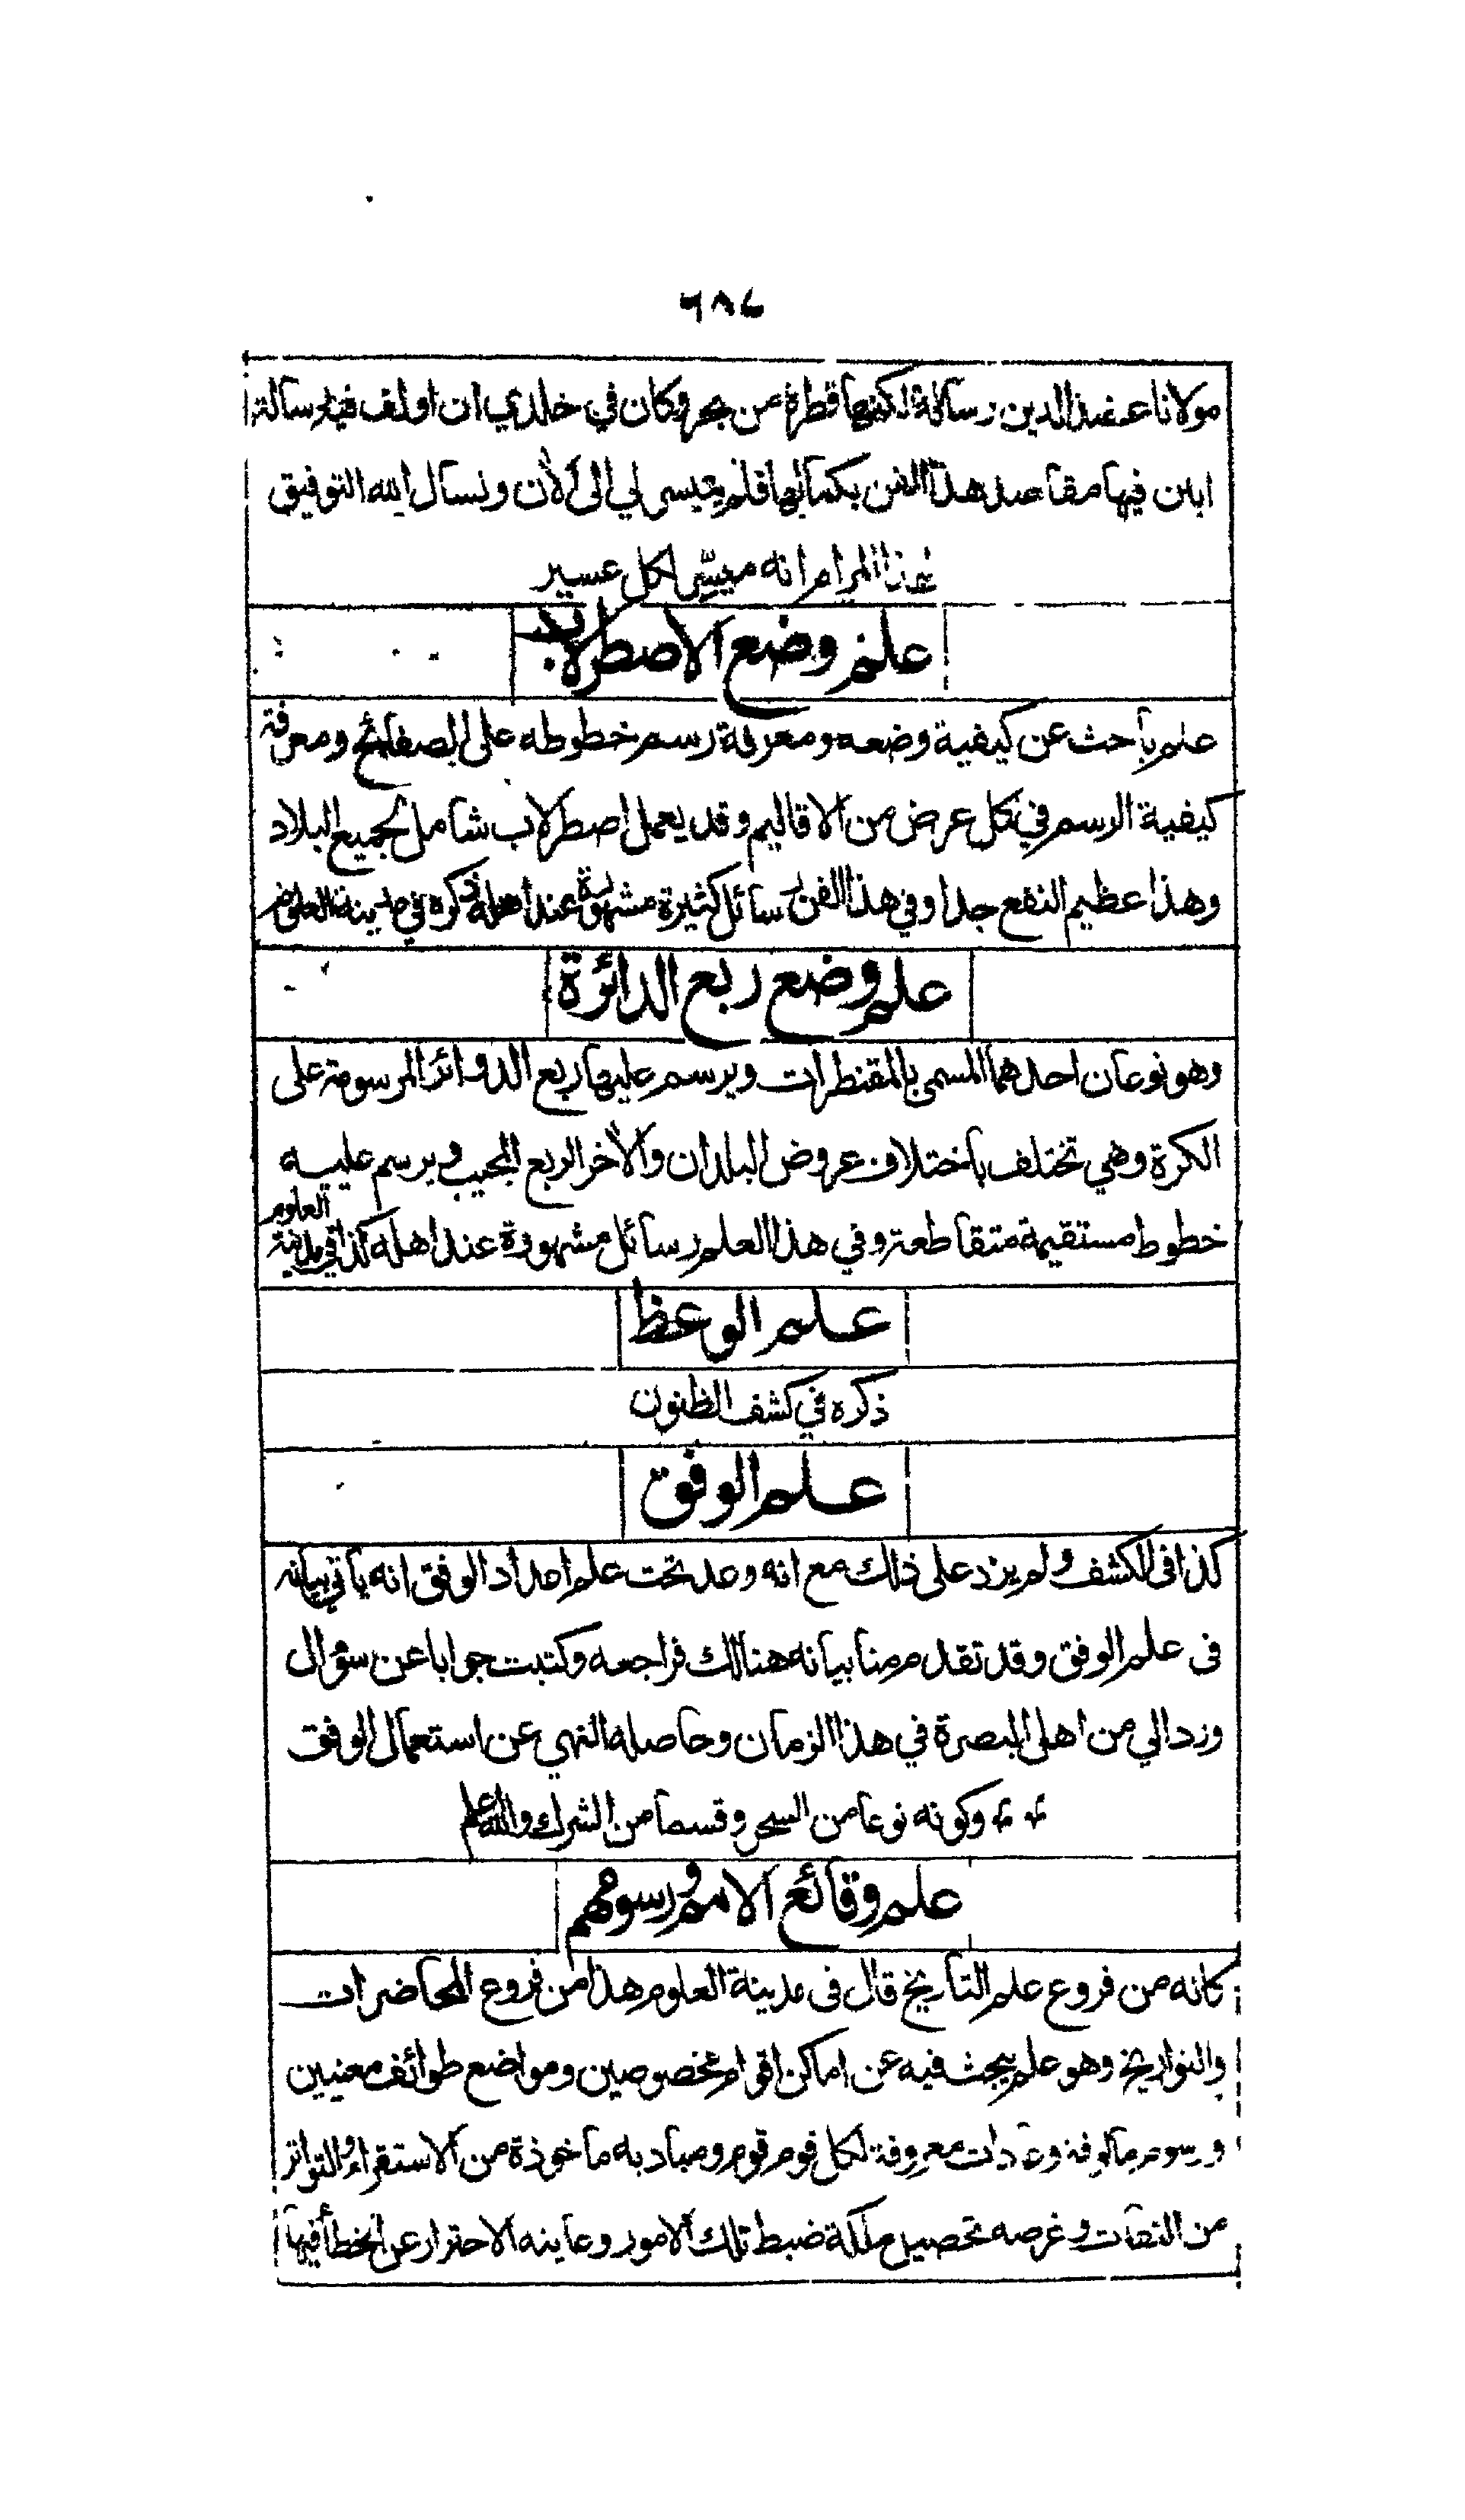 ٦٨٤
مولانا عضد الدين رسالة لكنها قطرة من بحر وكان في خلدي ان اولف فيه رسالة
ابين فيها مقاصد هذا الفن بكمالها فلم يتيسر لي الى الأن ونسأل الله التوفيق
لهذا المرام انه ميسّر لكل عسير
علم وضع الاصطرلاب
علم باحث عن كيفية وضعه ومعرفة رسم خطوطه على الصفائح ومعرفة
كيفية الرسم في كل عرض من الاقاليم وقد يعمل اصطرلاب شامل لجميع البلاد
وهذا عظيم النفع جدا وفي هذا الفن رسائل كثيرة مشهورة عند اهله ذكره في مدينة العلوم
علم وضع ربع الدائرة
وهو نوعان احدهما المسمى بالمقنطرات ويرسم عليها ربع الدوائر المرسومة على
الكرة وهي تختلف باختلاف عروض البلدان والأخر الربع المجيب ويرسم عليه
خطوط مستقيمة متقاطعة وفي هذا العلم رسائل مشهورة عند اهله كذا في مدينة العلوم
علم الوعظ
ذكره في كشف الظنون
علم الوفق
كذا فى الكشف ولم يزد على ذلك مع انه وعد تحت علم اعداد الوفق انه يأتي بيانه
فى علم الوفق وقد تقدم منا بيانه هنالك فراجعه وكتبت جوابا عن سؤال
ورد الي من اهل البصرة في هذا الزمان وحاصله النهي عن استعمال الوفق
وكونه نوعا من السحر وقسما من الشرك والله اعلم
علم وقائع الامم ورسومهم
كانه من فروع علم التأريخ قال فى مدينة العلوم هذا من فروع المحاضرات
والتواريخ وهو علم يبحث فيه عن اماكن اقوام مخصوصين ومواضع طوائف معنيين
ورسوم مالوفة وعادات معروفة لكل قوم قوم ومباديه ماخوذة من الاستقراء والتواتر
من الثقات وغرضه تحصيل ملكة ضبط تلك الامور وغاينه الاحتراز عن الخطأ فيها